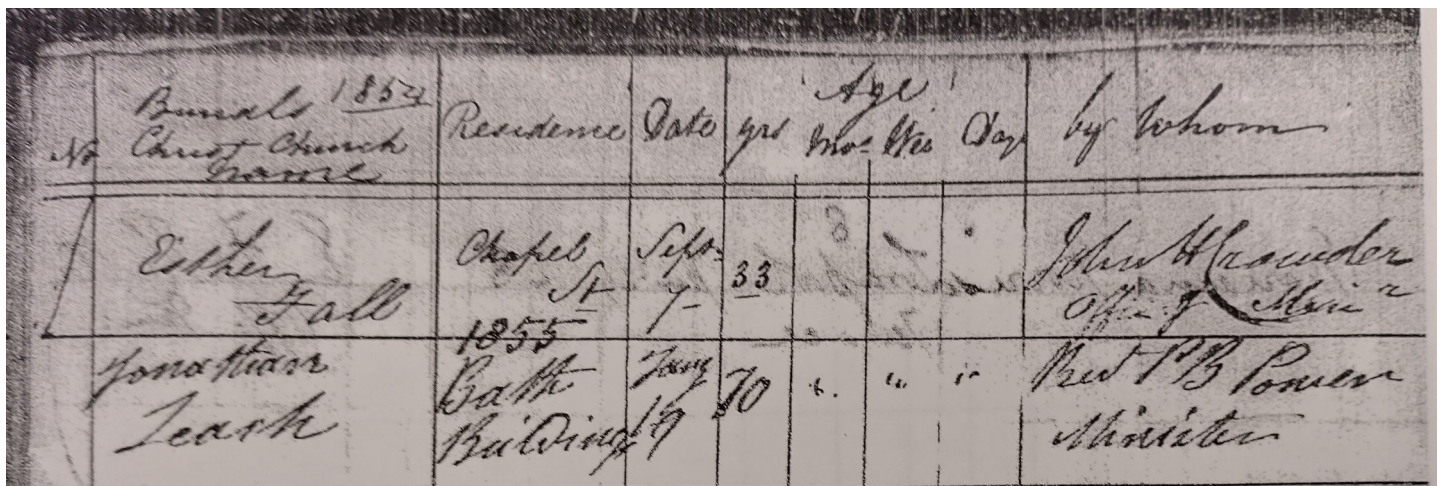 Burials 1854
Christ Church
Name
No
Residence
Date
Age
yrs Mos Wks Days
by Whom
Esther
Fall
Chapel
St
Sept
7
33
John H Crowder
Offg Minr
1855
Jonathan
Leach
Bath
Buildings
Jany
19
70 " " "
Revd P B Power
Minister